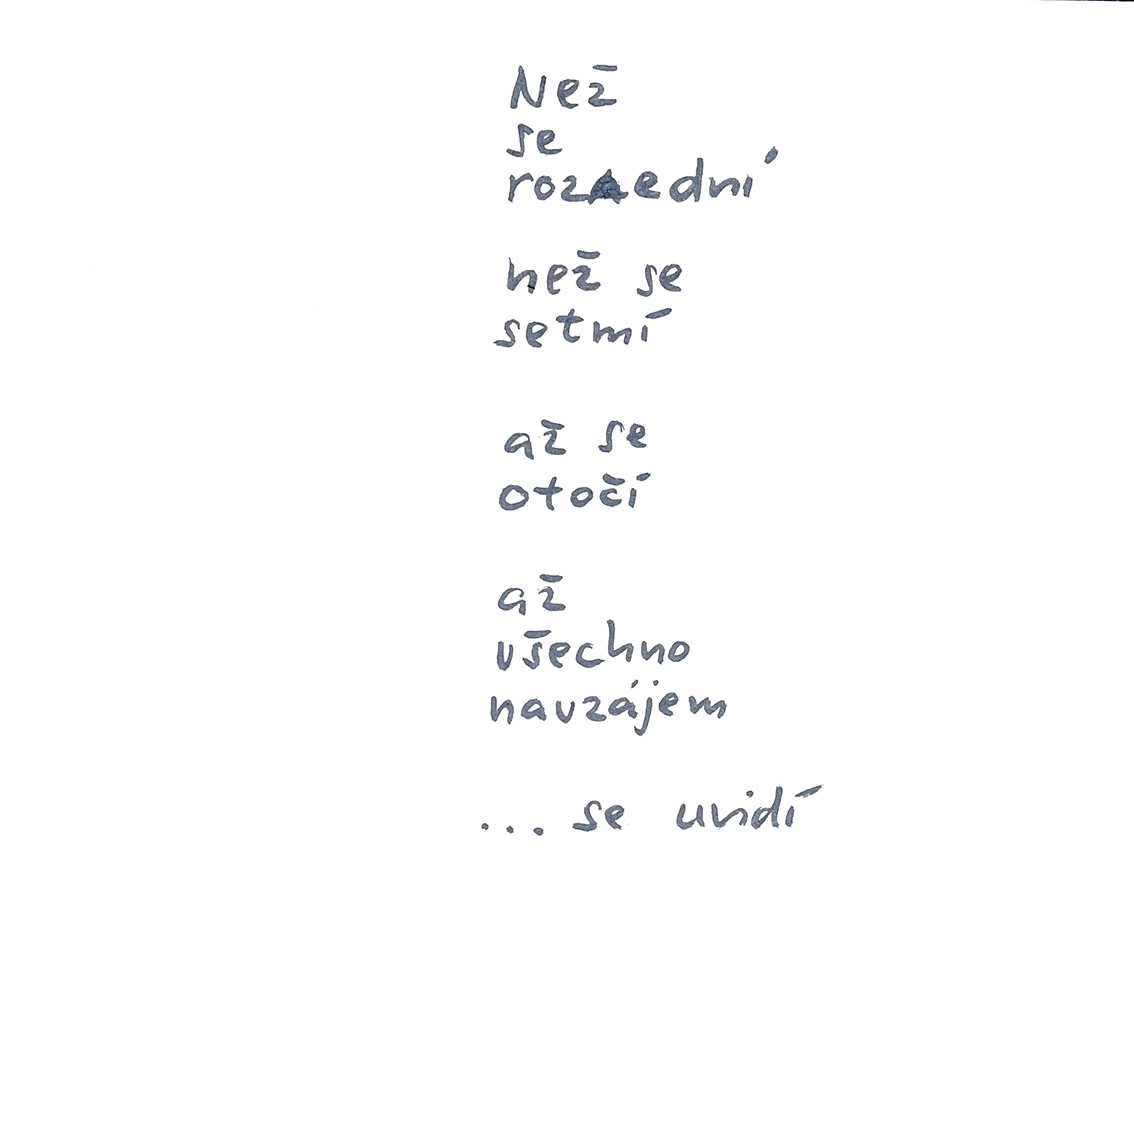 Než
se
rozední
než se
setmí
až se
otočí
až
všechno
navzájem
... se uvidí